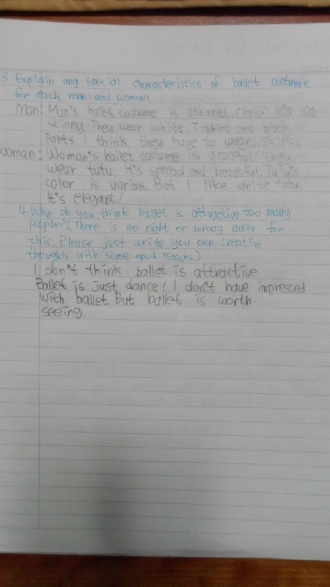 3. Explain any special characteristics of ballet costume
for each man and woman
man: Man's ballet costume is
skinny. They wear white T-shirt and black
Pants. I think they have to wear
woman: Woman's ballet costume is graceful. They
wear tutu. It's spread and beautiful. Tutu's
color is various. But I like white tutu
It's elegant!
4. Why do you think ballet is attractive too many
people? (There is no right or wrong answer for
this. Please just write you own creative
thoughts with some reasons.)
I don't think ballet is attractive
Ballet is just dance! I don't have impressed
with ballet. But ballet is worth
seeing.